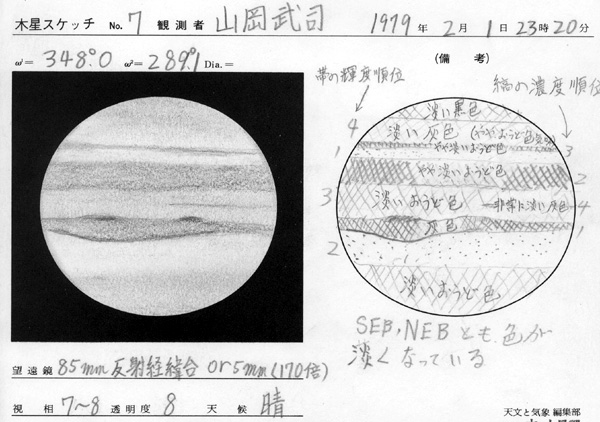 木星スケッチ No. 7 観測者 山岡武司 1979年 2月 1日 23時 20分
ω¹= 348.°0 ω²= 289.°1 Dia.=
(備考)
帯の輝度順位
縞の濃度順位
淡い黒色
4 淡い灰色 (ややおうど色
1 やや淡いおうど色 3
やや淡いおうど色 2
3 淡いおうど色 非常に淡い灰色 4
灰色 1
2
淡いおうど色
SEB, NEBとも 色が
淡くなっている
望遠鏡 85mm 反射経緯台 or5mm (170倍)
視相 7~8 透明度 8 天候 晴
天文と気象 編集部